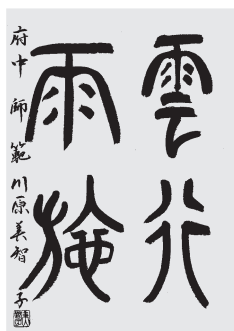 雲行
雨施
府中 師範 川原美智子